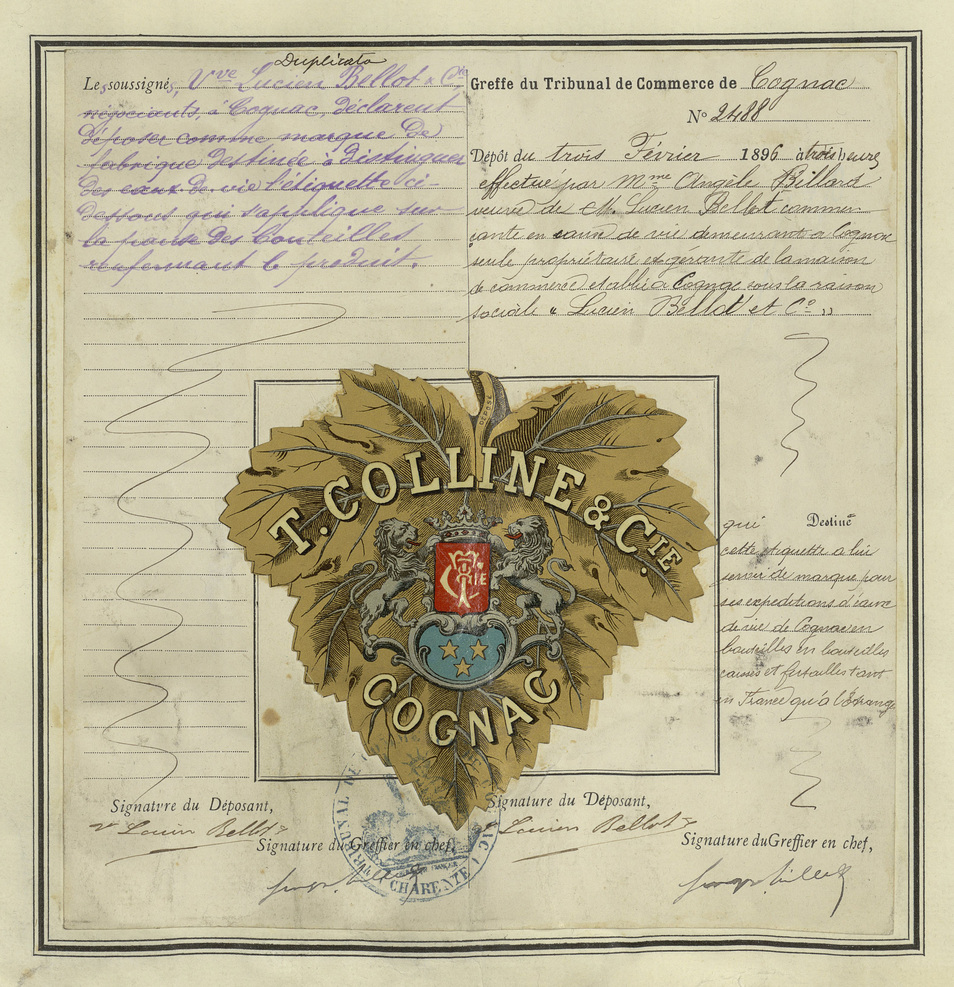 Duplicata
Les soussignés, Vve Lucien Bellot & Cie
négociants, à Cognac, déclarent
déposer comme marque de
fabrique destinée à distinguer
des eaux de vie l'étiquette ci-
dessous qui s'applique sur
la panse des bouteilles
renfermant le produit.
Greffe du Tribunal de Commerce de Cognac
No 2488
Dépôt du trois Février 1896 à trois heures
effectué par Mme Angèle Billard
veuve de M. Lucien Bellot commer
çante en eaux de vie demeurant à Cognac
seule propriétaire et gérante de la maison
de commerce établie à Cognac sous la raison
sociale « Lucien Bellot et Co »
DÉPOSÉ
T. COLLINE & CIE
COGNAC
qui Destiné
cette étiquette a lui
servir de marque pour
ses expéditions d'eaux
de vie de Cognac en
bouteilles en bouteilles
caisses et futailles tant
en France qu'à l'Étranger
Signature du Déposant,
Vve Lucien Bellot
Signature du Greffier en chef,
TRIBUNAL DE
CHARENTE
Signature du Déposant,
Lucien Bellot
Signature du Greffier en chef,